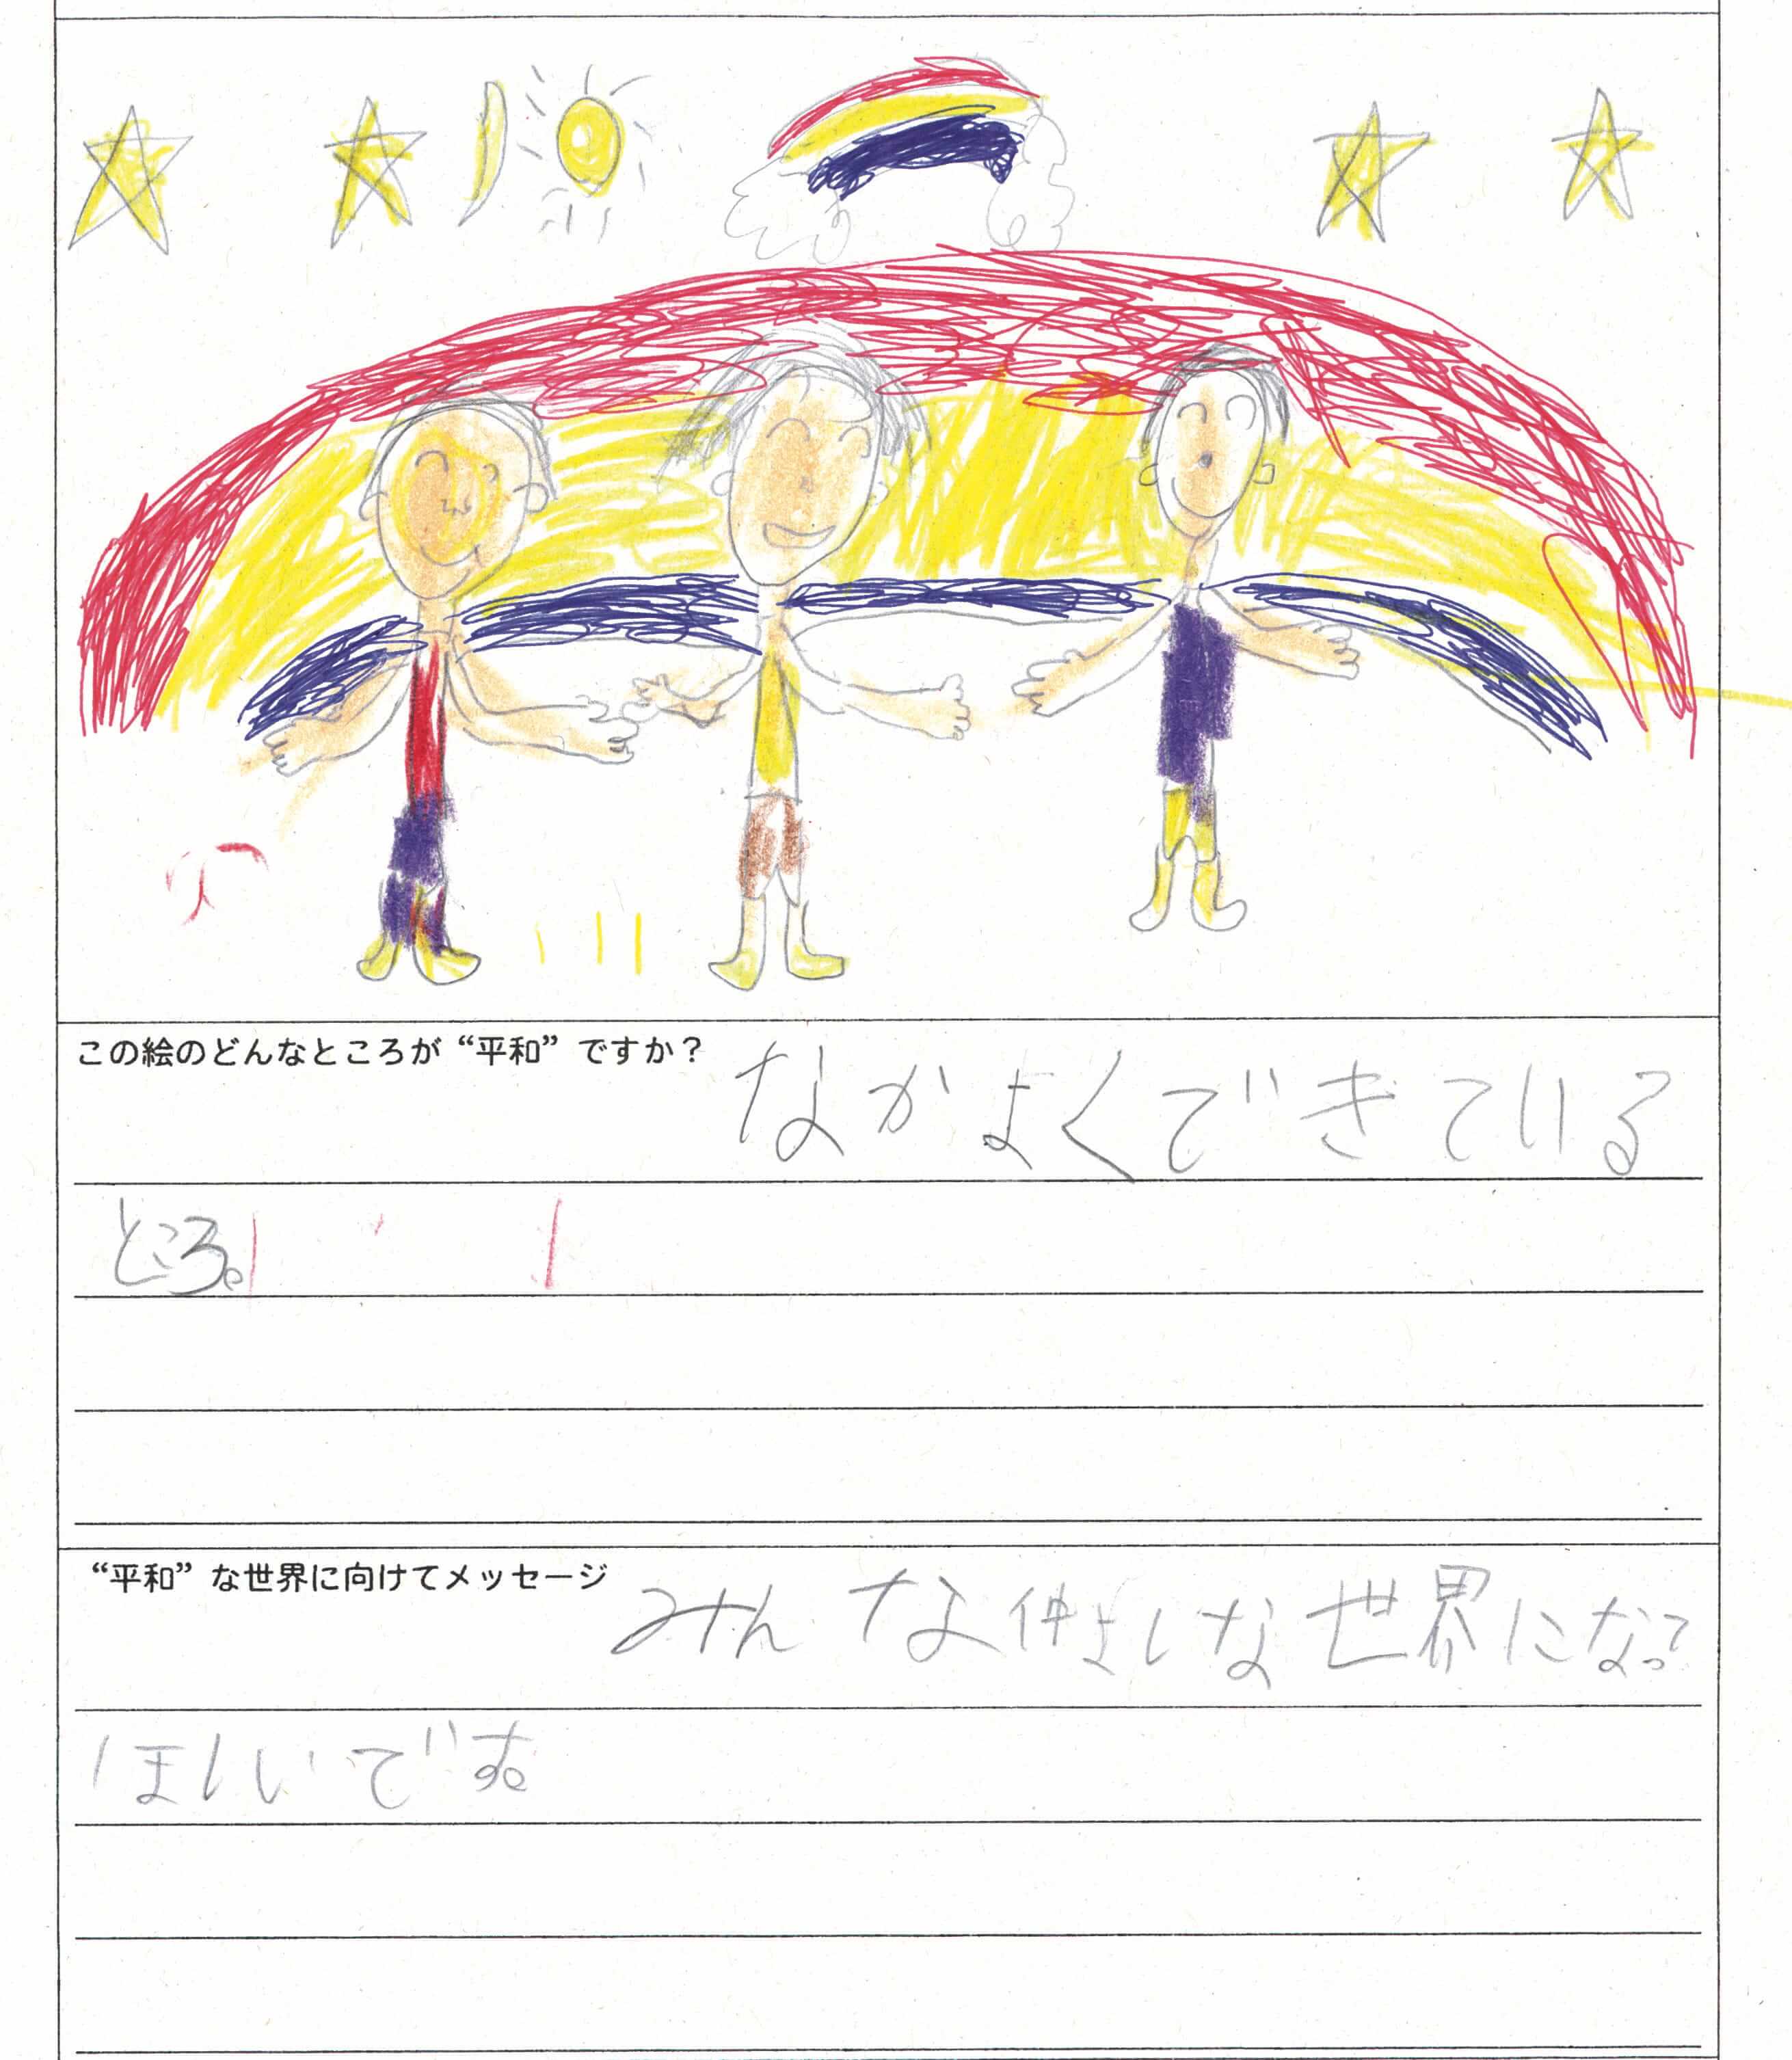 この絵のどんなところが“平和”ですか？ なかよくできている
ところ。
“平和”な世界に向けてメッセージ みんな仲よしな世界になって
ほしいです。